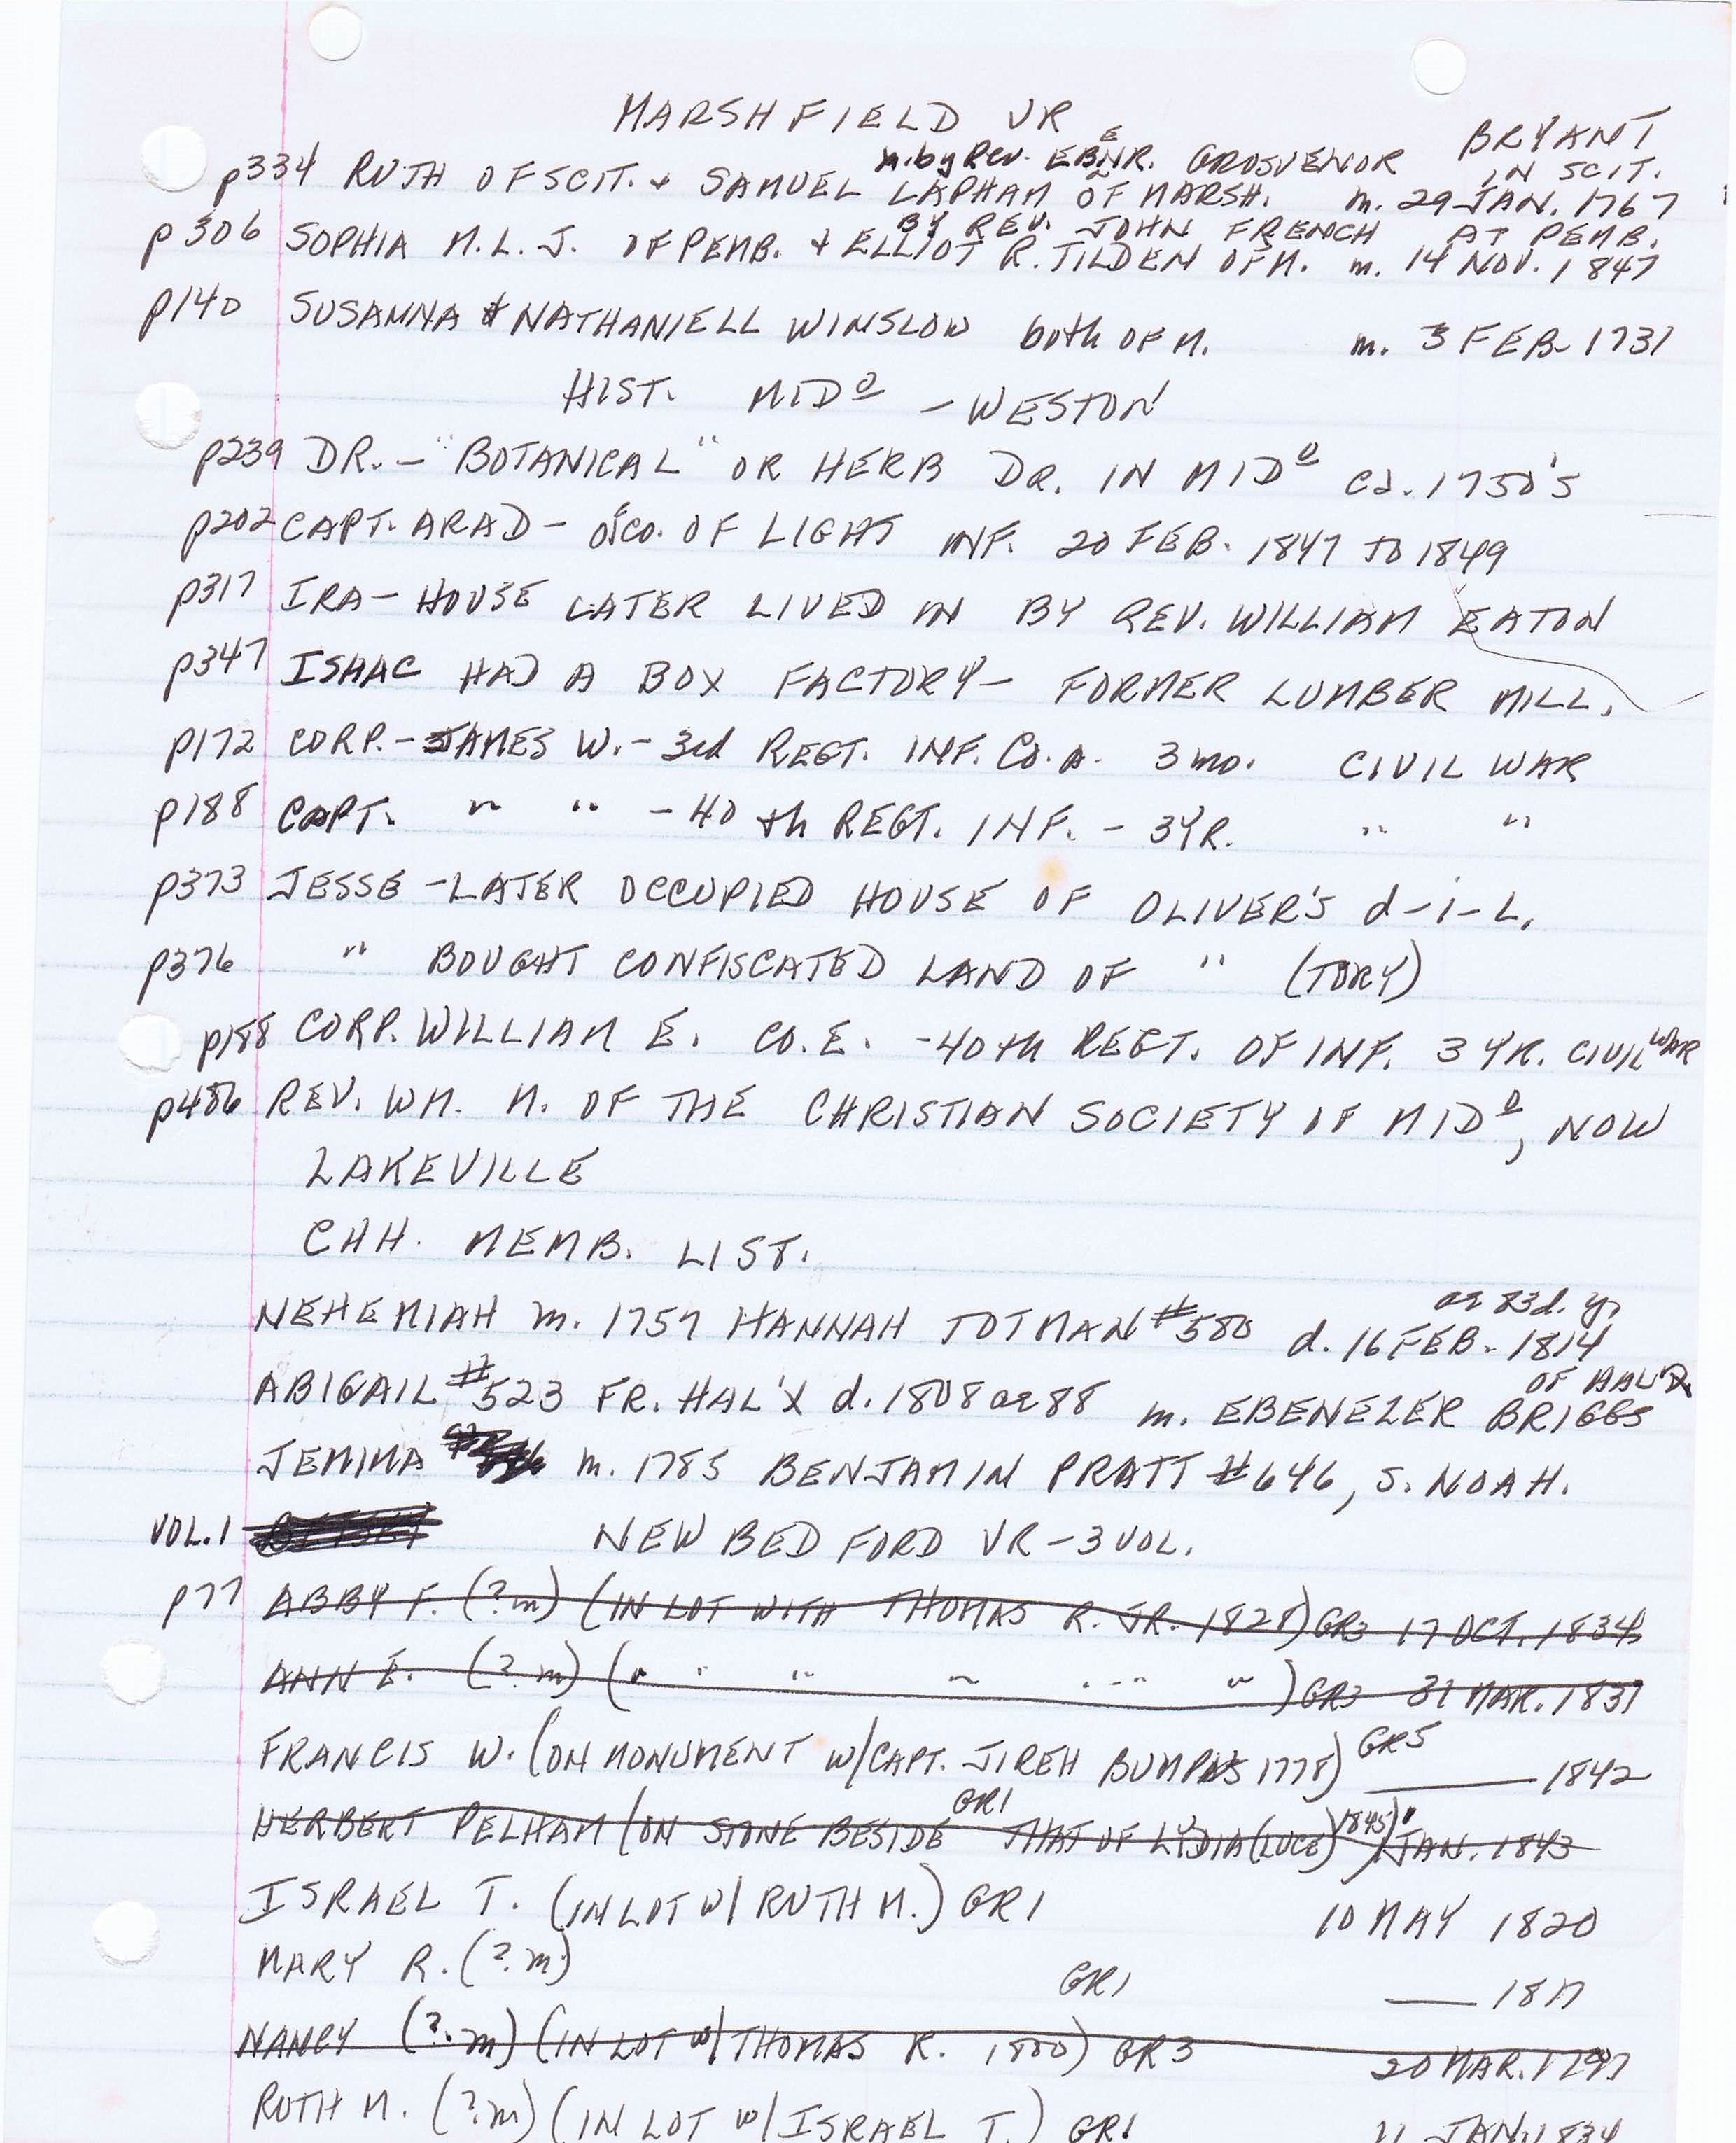 MARSHFIELD VR
BRYANT
m. by Rev. EBENR. GROSVENOR IN SCIT.
p334 RUTH OF SCIT. & SAMUEL LAPHAM OF MARSH. m. 29 JAN. 1767
BY REV. JOHN FRENCH AT PEMB.
p306 SOPHIA M. L. J. OF PEMB. & ELLIOT R. TILDEN OF M. m. 14 NOV. 1847
p140 SUSANNA & NATHANIELL WINSLOW both OF M. m. 3 FEB. 1731
HIST. MIDD - WESTON
p239 DR. - "BOTANICAL" OR HERB DR. IN MIDD ca. 1750's
p202 CAPT. ARAD - of co. OF LIGHT INF. 20 FEB. 1847 TO 1849
p317 IRA - HOUSE LATER LIVED IN BY REV. WILLIAM EATON
p347 ISAAC HAD A BOX FACTORY - FORMER LUMBER MILL.
p172 CORP. - JAMES W. - 3rd REGT. INF. Co. A. 3 mo. CIVIL WAR
p188 CAPT. " " - 40 th REGT. INF. - 3 YR. " "
p373 JESSE - LATER OCCUPIED HOUSE OF OLIVER'S d-i-L.
p376 " BOUGHT CONFISCATED LAND OF " (TORY)
p188 CORP. WILLIAM E. CO. E. - 40 th REGT. OF INF. 3 YR. CIVIL WAR
p486 REV. WM. M. OF THE CHRISTIAN SOCIETY OF MIDD, NOW
LAKEVILLE
CHH. MEMB. LIST.
ae 83d. yr.
NEHEMIAH m. 1757 HANNAH TOTMAN #580 d. 16 FEB. 1814
OF HAL'X
ABIGAIL #523 FR. HAL'X d. 1808 ae 88 m. EBENEZER BRIGGS
JEMIMA m. 1785 BENJAMIN PRATT #646, S. NOAH.
VOL. 1 NEW BEDFORD VR - 3 VOL.
p77 ABBY F. (?m) (IN LOT WITH THOMAS R. JR. 1828) GR3 17 OCT. 1834
ANN E. (?m) (" " " " " ") GR3 31 MAR. 1831
FRANCIS W. (ON MONUMENT w/CAPT. JIREH BUMPAS 1778) GR5 ____ 1842
HERBERT PELHAM (ON STONE BESIDE GR1 THAT OF LYDIA (LUCE) 1845) JAN. 1843
ISRAEL T. (IN LOT w/ RUTH M.) GR1 10 MAY 1820
MARY R. (?m) GR1 ____ 1817
NANCY (?m) (IN LOT w/ THOMAS R. 1800) GR3 20 MAR. 1797
RUTH M. (?m) (IN LOT w/ ISRAEL T.) GR1 JAN. 1834